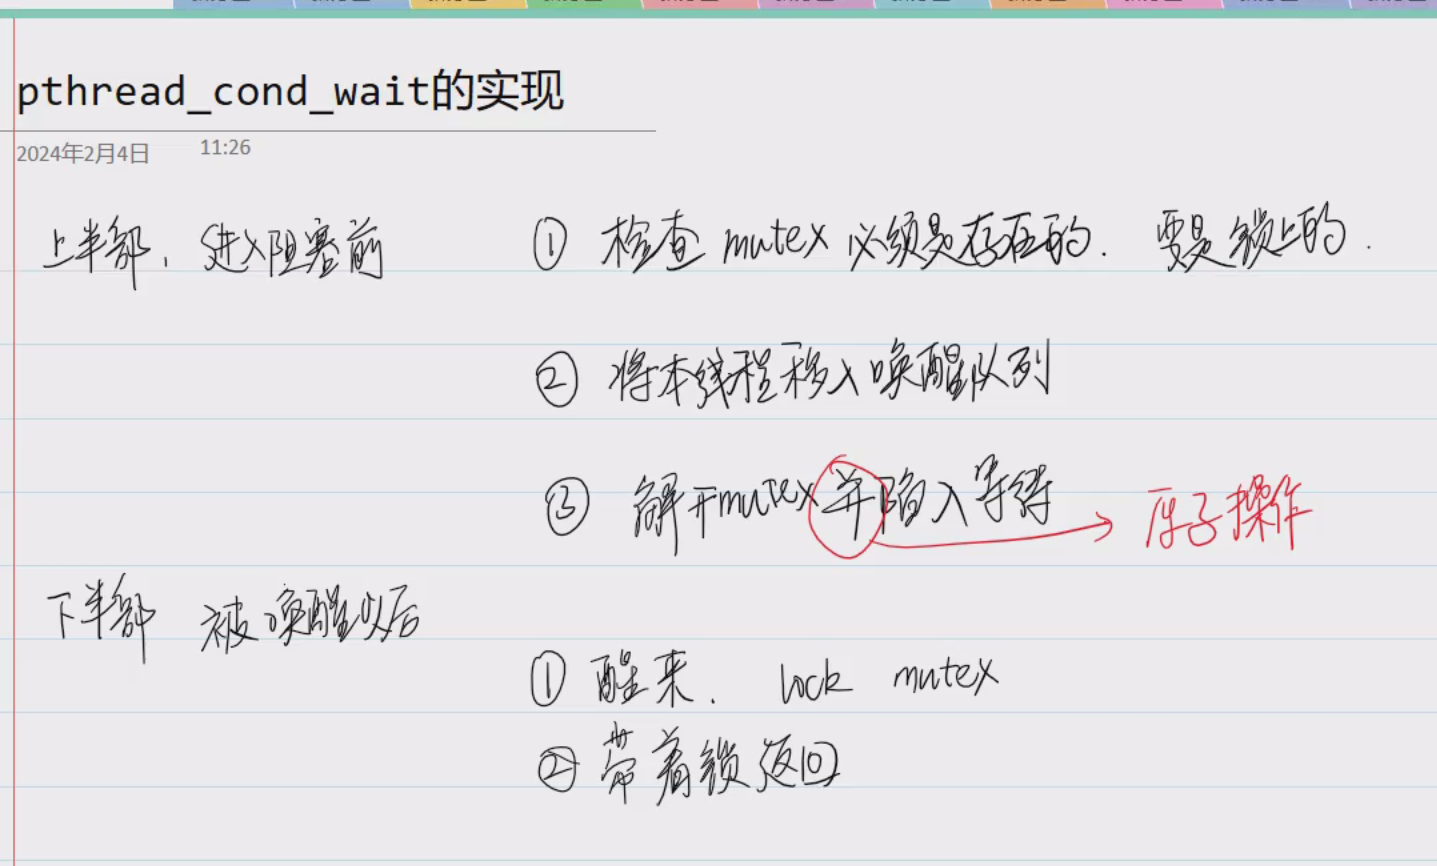 pthread_cond_wait的实现
2024年2月4日 11:26
上半部, 进入阻塞前 ① 检查 mutex 必须是存在的. 要是锁上的.
② 将本线程移入唤醒队列
③ 解开mutex并陷入等待 原子操作
下半部 被唤醒以后
① 醒来. lock mutex
② 带着锁返回